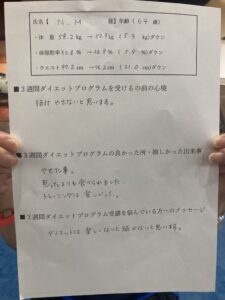 氏名【 N.M 様】年齢(64 歳)
・体 重 58.2kg → 52.9kg (5.3 kg)ダウン
・体脂肪率 32.8% → 26.9% (5.9 %)ダウン
・ウエスト → (21.0 cm)ダウン
■3週間ダイエットプログラムを受けるの前の心境
絶対やせないと思います。
■3週間ダイエットプログラムの良かった所・嬉しかった出来事
やせた事。
思ったよりも食べられました。
トレーニングは楽しかった。
■3週間ダイエットプログラム受講を悩んでいる方へのメッセージ
ダイエットは楽しくないと続かないと思います。